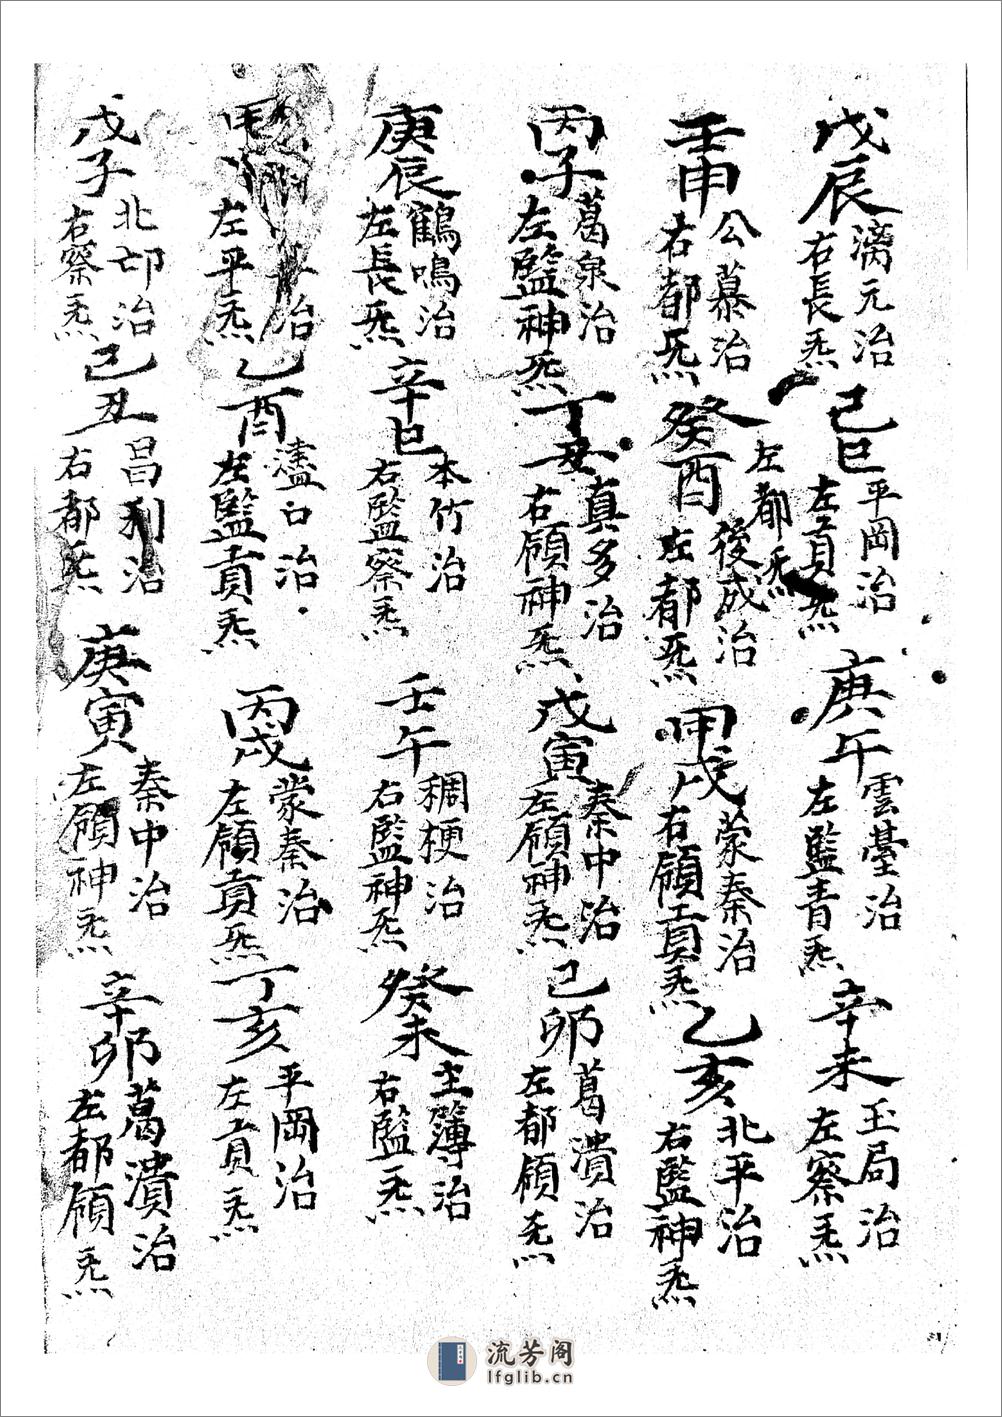 戊辰 漓元治 右長炁 己巳 平岡治 左貢炁 庚午 雲臺治 左監青炁 辛未 玉局治 左察炁
壬申 公慕治 右都炁 癸酉 左都炁 後成治 左都炁 甲戌 蒙秦治 右領貢炁 乙亥 北平治 右監神炁
丙子 葛泉治 左監神炁 丁丑 真多治 右領神炁 戊寅 秦中治 左領神炁 己卯 葛潰治 左都領炁
庚辰 鶴鳴治 左長炁 辛巳 本竹治 右監察炁 壬午 稠梗治 右監神炁 癸未 主簿治 右監炁
治 左平炁 乙酉 濜口治 左監貢炁 丙戌 蒙秦治 左領貢炁 丁亥 平岡治 左貢炁
戊子 北邙治 右察炁 己丑 昌利治 右都炁 庚寅 秦中治 左領神炁 辛卯 葛潰治 左都領炁
流芳阁
lfglib.cn